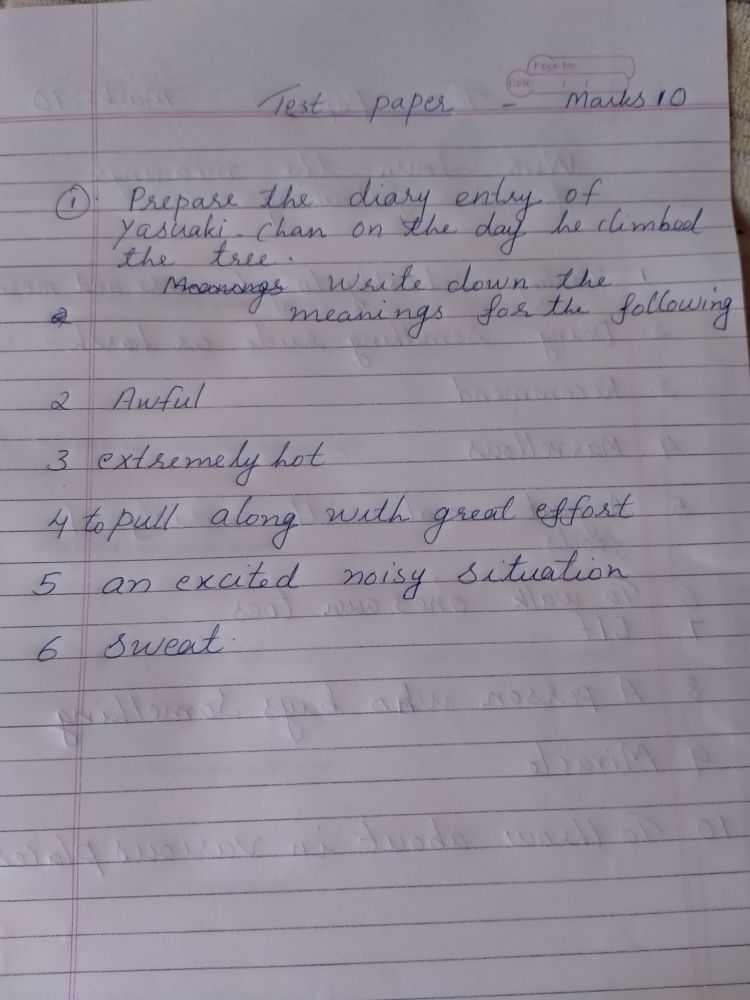 Page No.
Date / /
Test paper - Marks 10
① Prepare the diary entry of
Yasuaki-Chan on the day he climbed
the tree.
Meanings Write down the
2 meanings for the following
2 Awful
3 extremely hot
4 to pull along with great effort
5 an excited noisy situation
6 Sweat.